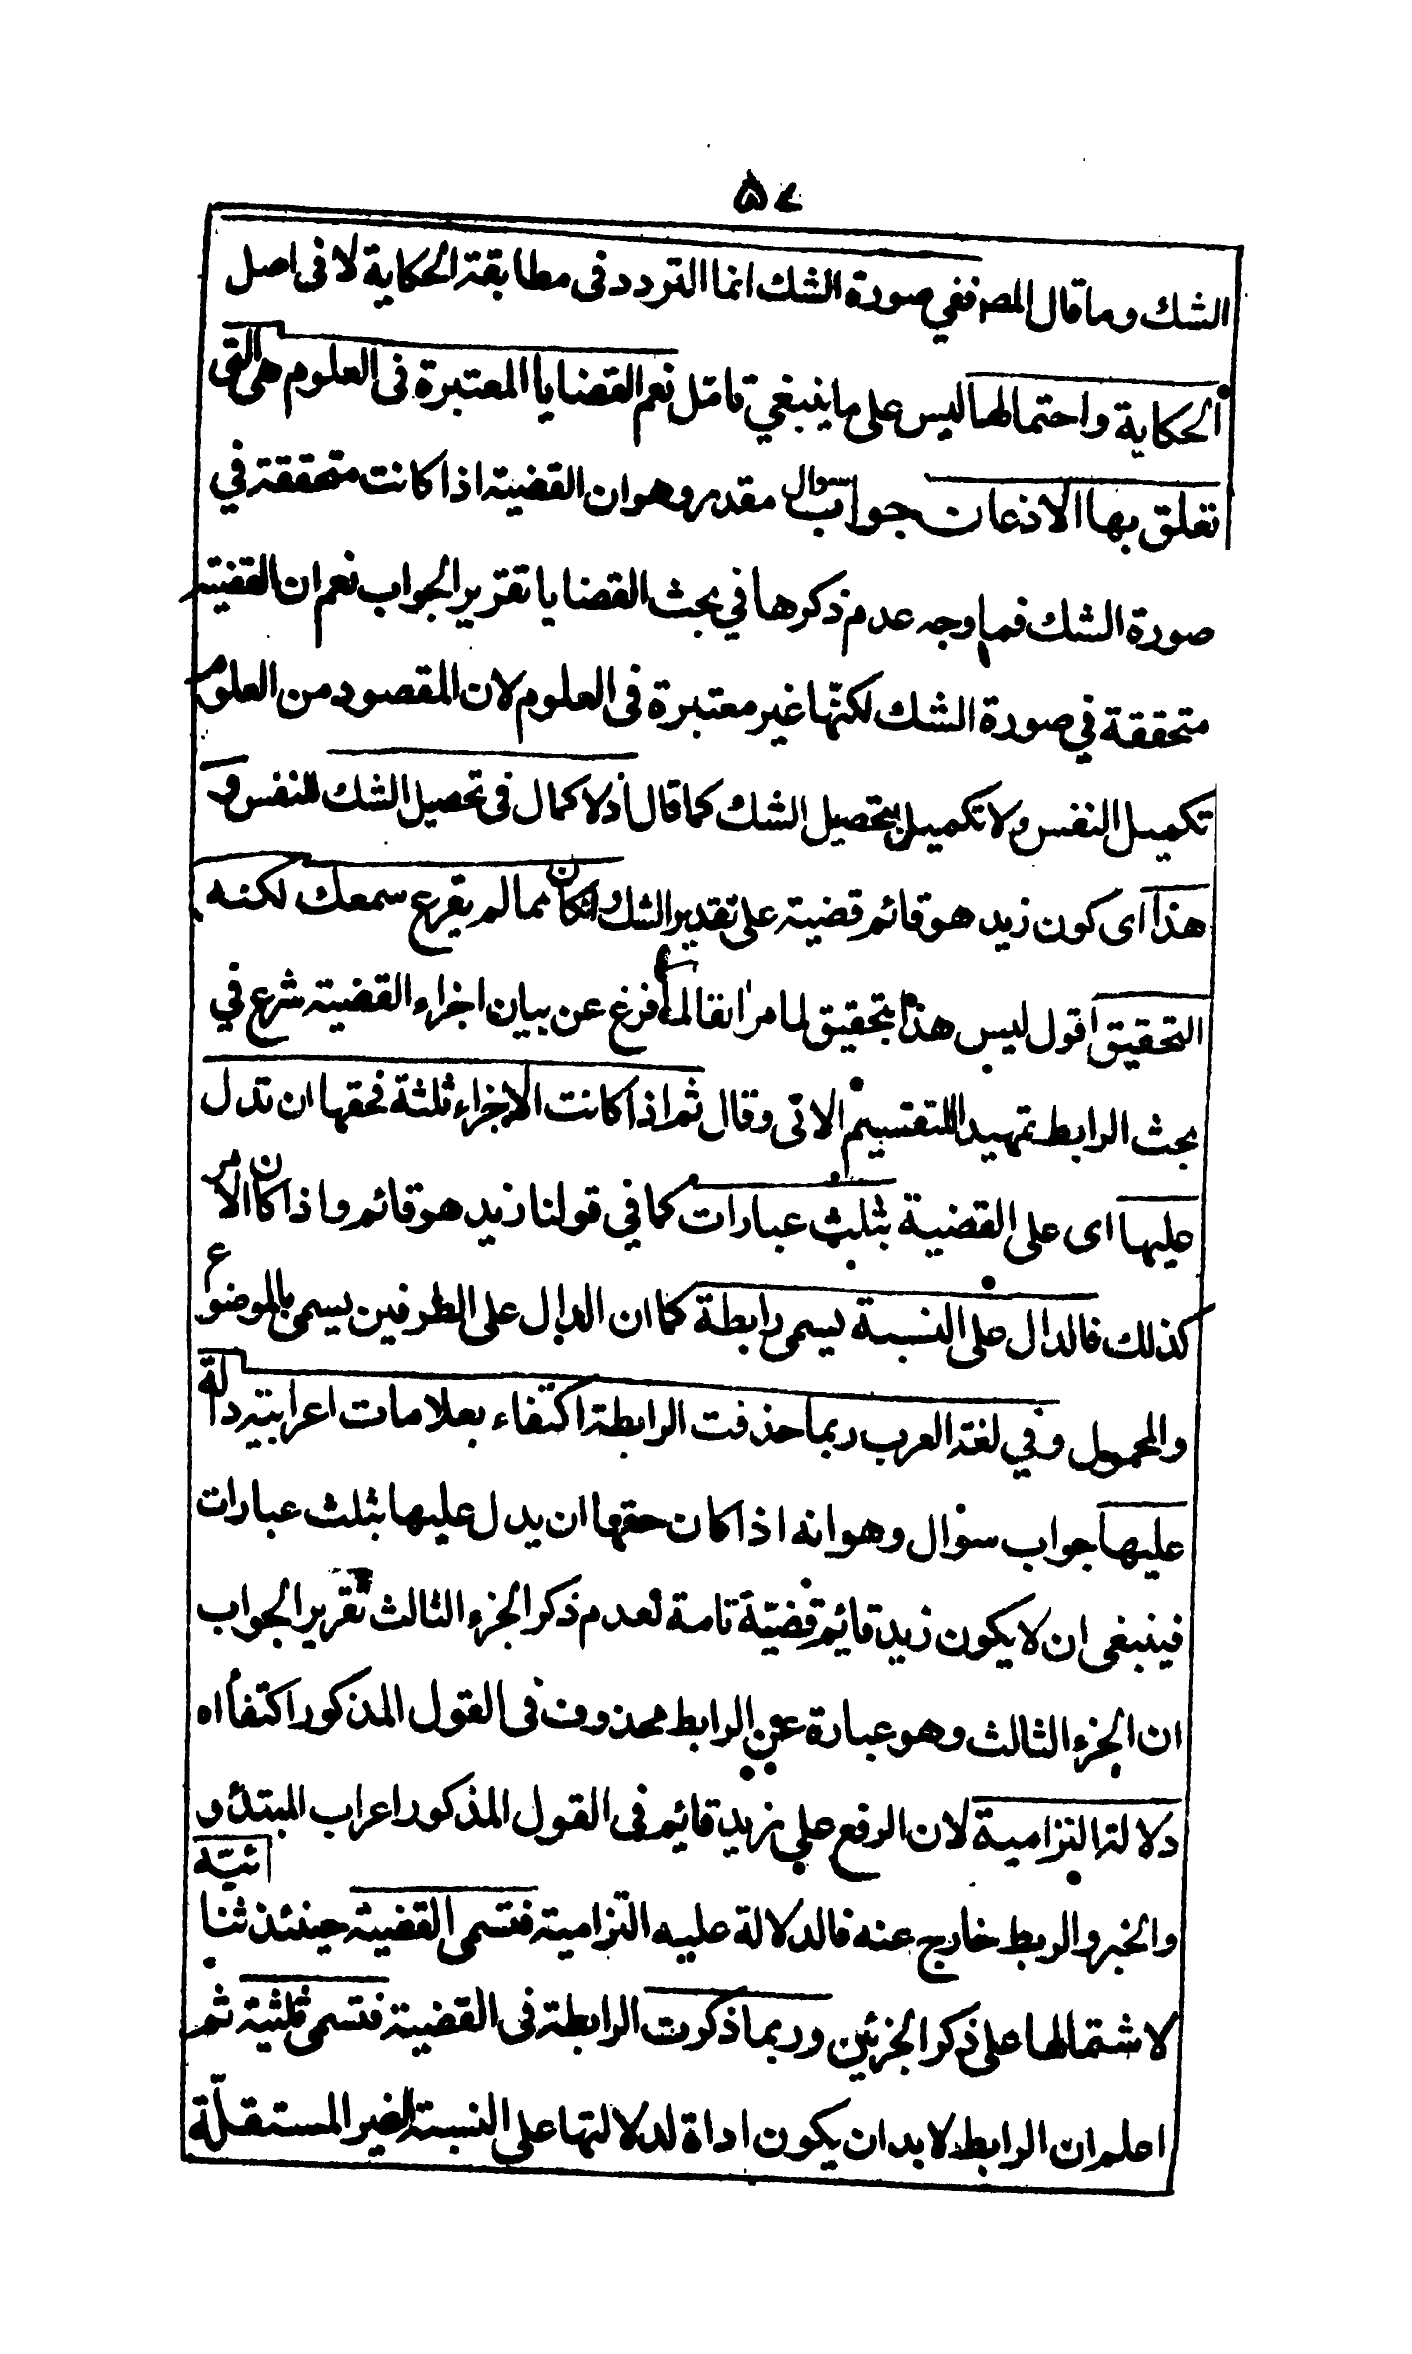 ۵۷
الشك وما قال المصـ ففي صورة الشك انما التردد فى مطابقة الحكاية لا فى اصل
الحكاية واحتمالها ليس على ما ينبغي تامّل نعم القضايا المعتبرة فى العلوم هى التى
تعلق بها الاذعان جواب سوال مقدر وهو ان القضية اذا كانت متحققة في
صورة الشك فما وجه عدم ذكرها في بحث القضايا تقرير الجواب نعم ان القضية
متحققة في صورة الشك لكنّها غير معتبرة فى العلوم لان المقصود من العلوم
تكميل النفس ولا تكميل بتحصيل الشك كما قال اذ لا كمال فى تحصيل الشك للنفس و
هذا اى كون زيد هو قائم قضية على تقدير الشك وان كان مما لم يقرع سمعك لكنه
التحقيق اقول ليس هذا بتحقيق لما مر انفا لما فرغ عن بيان اجزاء القضية شرع في
بحث الرابط تمهيدا للتقسيم الاتى وقال ثم اذا كانت الاجزاء ثلثة فحقها ان تدل
عليها اى على القضية بثلث عبارات كما في قولنا زيد هو قائم واذا كان الامر
كذلك فالدال على النسبة يسمى رابطة كما ان الدال على الطرفين يسمى بالموضوع
والمحمول وفي لغة العرب ربما حذفت الرابطة اكتفاء بعلامات اعرابية دالة
عليها جواب سؤال وهو انه اذا كان حقها ان يدل عليها بثلث عبارات
فينبغى ان لا يكون زيد قائم قضيّة تامة لعدم ذكر الجزء الثالث تقرير الجواب
ان الجزء الثالث وهو عبارة عن الرابط محذوف فى القول المذكور اكتفاء اه
دلالة التزامية لان الرفع على زيد قائم فى القول المذكور اعراب المبتدأ و
والخبر والربط خارج عنه فالدلالة عليه التزامية فتسمى القضية حينئذ ثنائيّة
لاشتمالها على ذكر الجزئين وربما ذكرت الرابطة فى القضية فتسمى ثلثية ثم
اعلم ان الرابط لا بد ان يكون اداة لدلالتها على النسبة الغير المستقلّة